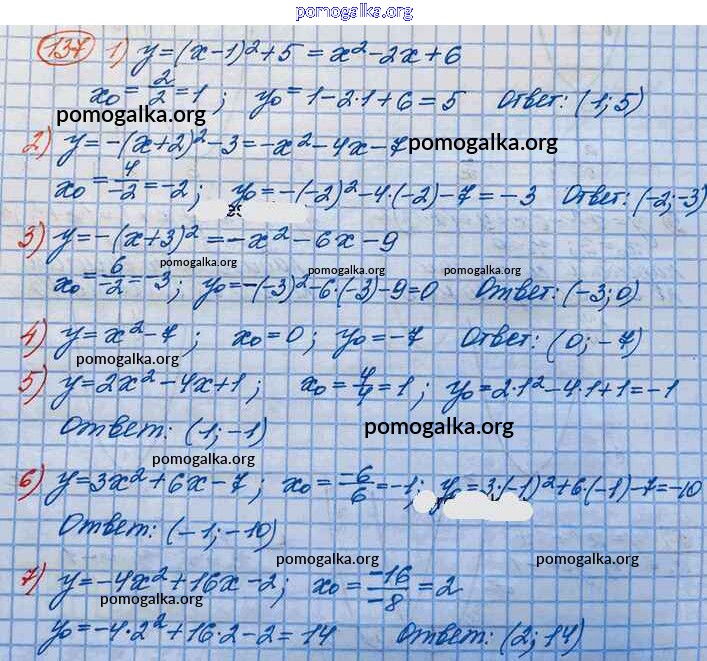 pomogalka.org
137 1) y=(x-1)²+5 = x²-2x+6
x₀ = 2/2 = 1; y₀ = 1-2·1+6 = 5 Ответ: (1; 5)
pomogalka.org
2) y=-(x+2)²-3=-x²-4x-7 pomogalka.org
x₀ = 4/-2 = -2; y₀ = -(-2)²-4·(-2)-7 = -3 Ответ: (-2; -3)
3) y=-(x+3)² = -x²-6x-9
pomogalka.org pomogalka.org pomogalka.org
x₀ = 6/-2 = -3; y₀=-(-3)²-6·(-3)-9=0 Ответ: (-3; 0)
4) y=x²-7; x₀=0; y₀=-7 Ответ: (0; -7)
pomogalka.org
5) y=2x²-4x+1; x₀=4/4=1; y₀=2·1²-4·1+1=-1
Ответ: (1; -1) pomogalka.org
pomogalka.org
6) y=3x²+6x-7; x₀=-6/6=-1; y₀=3·(-1)²+6·(-1)-7=-10
Ответ: (-1; -10)
pomogalka.org pomogalka.org
7) y=-4x²+16x-2; x₀=-16/-8=2
pomogalka.org
y₀=-4·2²+16·2-2=14 Ответ: (2; 14)